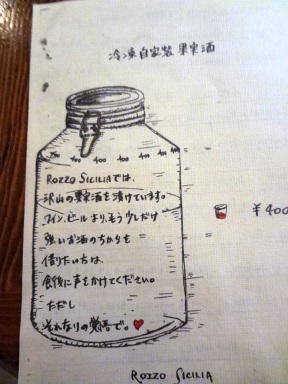 冷凍自家製果実酒
400 400 400
ROZZO SICILIAでは、
沢山の果実酒を漬けています。
ワイン、ビールより、もう少しだけ
強いお酒のちからを
借りたい方は、
食後に声をかけてください。
ただし
それなりの覚悟で。
¥400
ROZZO SICILIA